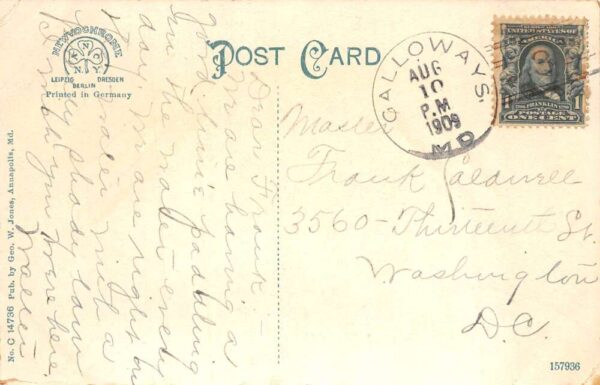 NEWVOCHROME
K N O
N.Y.
LEIPZIG DRESDEN
BERLIN
Printed in Germany
POST CARD
GALLOWAYS.
AUG
10
P.M
1909
MD
UNITED STATES OF AMERICA
FRANKLIN
1 1
POSTAGE
ONE CENT
Master
Frank Caldwell
3560 - Thirteenth St.
Washington
D.C.
Dear Frank:-
We are having a
good time paddling
in the water every
day. We are right on
the water with a
shady lawn
Wish you were here.
Walter
No. C 14736 Pub. by Geo. W. Jones, Annapolis, Md.
157936